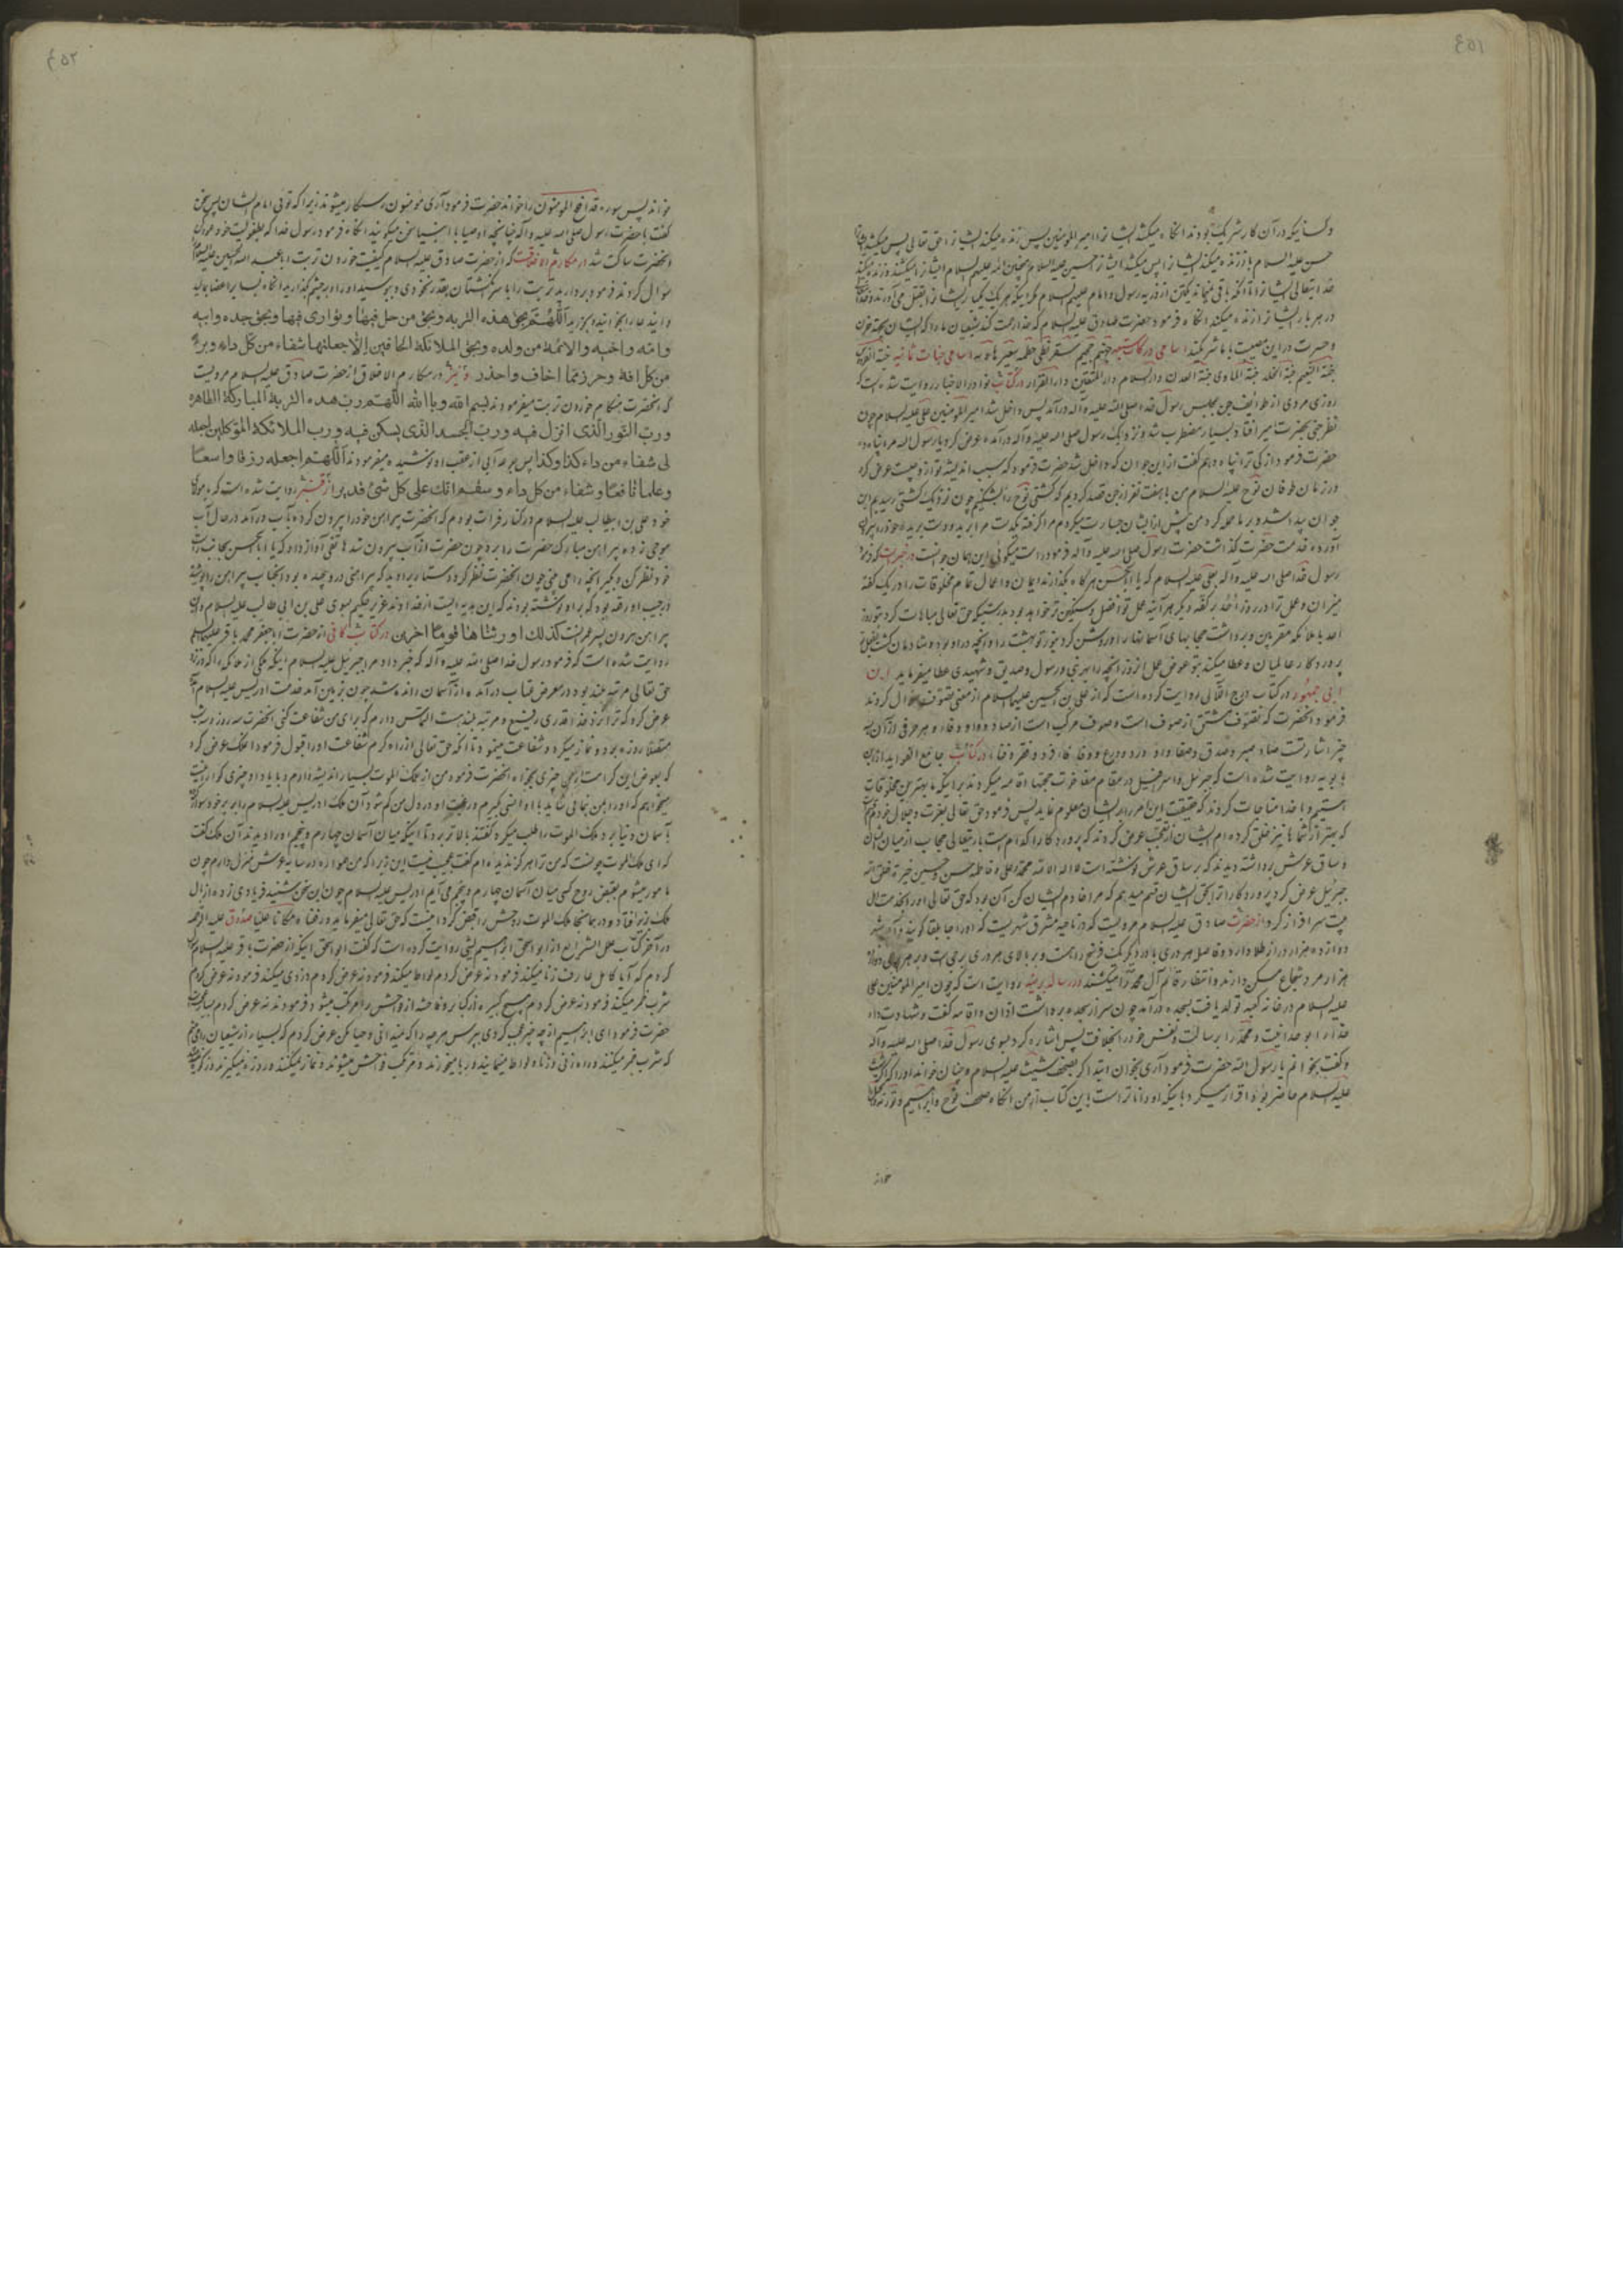 ٤٥١
وکسانیکه در آن کار شریک بودند آنگاه میکشد ایشانرا امیرالمؤمنین پس زنده میکند ایشانرا حق تعالی پس میکشد ایشانرا
حسن علیه السلام باز زنده میکند ایشانرا پس میکشد ایشانرا حسین علیه السلام همچنین ائمه علیهم السلام ایشانرا میکشند و زنده میکند
خدایتعالی ایشانرا تا آنکه باقی نمیماند یکتن از ذریه رسول و امام علیهم السلام مگر اینکه هر یک یکبار ایشانرا بقتل می آورند و خدا
در هر بار ایشانرا زنده میکند آنگاه فرمود حضرت صادق علیه السلام که خدا رحمت کند شیعیان ما را که ایشان بجهة حزن
و حسرت در این مصیبت با ما شریکند اسامی درکات سبعه جهنم جحیم سقر لظی حطمه سعیر هاویه اسامی جنات ثمانیه جنة الفردوس
جنة النعیم جنة الخلد جنة الماوی جنة العدن دارالسلام دارالمتقین دارالقرار در کتاب نوادر الاخبار روایت شده است که
روزی مردی از طوایف جن بمجلس رسول خدا صلی الله علیه و آله درآمد پس داخل شد امیرالمؤمنین علی علیه السلام چون
نظر جنی بحضرت امیر افتاد بسیار مضطرب شد و نزدیک رسول صلی الله علیه و آله درآمده عرض کرد یا رسول الله مرا پناه ده
حضرت فرمود از کی ترا پناه دهم گفت از این جوان که داخل شد حضرت فرمود که سبب اندیشه تو از او چیست عرض کرد
در زمان طوفان نوح علیه السلام من با هفت نفر از جن قصد کردیم که کشتی نوح را بشکنیم چون نزدیک کشتی رسیدیم این
جوان پیدا شد و بر ما حمله کرد من پیش از ایشان جسارت میکردم مرا گرفته یکدست مرا برید و دست بریده خود را بیرون
آورده خدمت حضرت گذاشت حضرت رسول صلی الله علیه و آله فرمود راست میگوئی این همان جوانست در خبر است که فرمود
رسول خدا صلی الله علیه و آله بعلی علیه السلام که یا اباالحسن هرگاه بگذارند ایمان و اعمال تمام مخلوقات را در یک کفه
میزان و عمل ترا در روز احد بر کفه دیگر هر آینه عمل تو افضل و سنگین تر خواهد بود بدرستیکه حق تعالی مباهات کرد بتو روز
احد با ملائکه مقربین و برداشت حجابهای آسمانها را و روشن کردید بنور تو بهشت را و آنچه در او بود و شادمان گشت بفعل تو
پروردگار عالمیان و عطا میکند بتو عوض عمل آنروز آنچه را بهر نبی و رسول و صدیق و شهیدی عطا میفرماید ابن
ابی جمهور در کتاب درج اللآلی روایت کرده است که از علی بن الحسین علیهما السلام از معنی تصوف سؤال کردند
فرمود آنحضرت که تصوف مشتق از صوف است و صوف مرکب است از صاد و واو و فاء و هر حرفی از آن بسه
چیز اشارتست صاد صبر و صدق و صفا واو ورد و ورع و وفا فاء فرد و فقر و فنا در کتاب جامع الفواید از ابن
بابویه روایت شده است که جبرئیل و اسرافیل در مقام مفاخرت حجتها اقامه میکردند بر اینکه ما بهترین مخلوقات
هستیم و با خدا مناجات کردند که حقیقت این امر را بر ایشان معلوم نماید پس فرمود حق تعالی بعزت و جلال خودم قسم
که بهتر از شما ها نیز خلق کرده ام ایشان از تعجب عرض کردند که پروردگارا کدام است باریتعالی حجاب از میان ایشان
و ساق عرش برداشته دیدند که بر ساق عرش نوشته است لا اله الا الله محمد و علی و فاطمه و حسن و حسین خیرة خلق الله
جبرئیل عرض کرد پروردگارا ترا بحق ایشان قسم میدهم که مرا خادم ایشان کن آن بود که حق تعالی او را بخدمت اهل
بیت سرافراز کرد از حضرت صادق علیه السلام مرویست که در ناحیه مشرق شهریست که او را جابلقا گویند و آن شهر
دوازده هزار در از طلا دارد و فاصل هر دری با در دیگر یک فرسخ راهست و بر بالای هر دری برجی است و بر هر برجی دوازده
هزار مرد شجاع مسکن دارند و انتظار قائم آل محمد را میکشند در رساله بربنیه روایت است که چون امیرالمؤمنین علی
علیه السلام در خانه کعبه تولد یافت بسجده درآمد چون سر از سجده برداشت اذان و اقامه گفت و شهادت داد
خدا را بوحدانیت و محمد را برسالت و نفس خود را بخلافت پس اشاره کرد بسوی رسول خدا صلی الله علیه و آله
و گفت بخوانم یا رسول الله حضرت فرمود آری بخوان ابتدا کرد بصحف شیث علیه السلام و چنان خواند او را که اگر شیث
علیه السلام حاضر بود اقرار میکرد باینکه او داناتر است باین کتاب از من آنگاه صحف نوح و ابراهیم و توریة و انجیل
خواند
٤٥٢
خواند پس سوره قد افلح المؤمنون را خواند حضرت فرمود آری مؤمنون رستگار میشوند زیرا که توئی امام ایشان پس سخن
گفت با حضرت رسول صلی الله علیه و آله چنانچه اوصیا با انبیا سخن میگویند آنگاه فرمود رسول خدا که بطفولیت خود عود کن
آنحضرت ساکت شد در مکارم الاخلاقست که از حضرت صادق علیه السلام کیفیت خوردن تربت اباعبدالله الحسین علیه السلام
سؤال کردند فرمود بردارید تربت را با سر انگشتان بقدر نخودی و ببوسید او را و بر چشم گذارید آنگاه بسایر اعضا بمالید
و ایندعا را بخوانید و بخورید اللهم بحق هذه التربه و بحق من حل فیها و توارى فیها و بحق جده وابیه
وامه واخیه والائمة من ولده وبحق الملائکة الحافین الا جعلتها شفاء من کل داء وبرء
من کل افة وحرزا مما اخاف واحذر و نیز در مکارم الاخلاق از حضرت صادق علیه السلام مرویست
که آنحضرت هنگام خوردن تربت میفرمودند بسم الله وبالله اللهم رب هذه التربة المبارکة الطاهرة
ورب النور الذی انزل فیه ورب الجسد الذی یسکن فیه ورب الملائکة الموکلین اجعله
لی شفاء من داء کذا وکذا پس جرعه آبی از عقب او نوشیده میفرمودند اللهم اجعله رزقا واسعا
وعلما نافعا وشفاء من کل داء وسقم انک علی کل شیء قدیر از قنبر روایت شده است که با مولای
خود علی بن ابیطالب علیه السلام در کنار فرات بودم که آنحضرت پیراهن خود را بیرون کرده بآب درآمد در حال آب
موجی زده پیراهن مبارک حضرت را برد چون حضرت از آب بیرون شد هاتفی آواز داد که یا اباالحسن بجانب راست
خود نظر کن و بگیر آنچه را می بینی چون آنحضرت نظر کرد دستاری را دید که پیراهنی در او پیچیده بود آنجناب پیراهن را پوشید
در جیب او رقعه بود که بر او نوشته بودند که این هدیه ایست از خداوند عزیز حکیم بسوی علی بن ابی طالب علیه السلام و این
پیراهن هرون پسر عمرانست کذلک اورثناها قوما اخرین در کتاب کافی از حضرت اباجعفر محمد باقر علیه السلام
روایت شده است که فرمود رسول خدا صلی الله علیه و آله که خبر داد مرا جبرئیل علیه السلام اینکه ملکی از ملائکه را که در نزد
حق تعالی مرتبه بلند بود در معرض عتاب درآمده از آسمان رانده شد چون بزمین آمد خدمت ادریس علیه السلام آمده
عرض کرد که ترا نزد خدا قدری رفیع و مرتبه بلند هست التماس دارم که برای من شفاعت کنی آنحضرت سه روز و سه شب
متصلا روزه بود و نماز میکرد و شفاعت مینمود تا آنکه حق تعالی از راه کرم شفاعت او را قبول فرمود املک عرض کرد
که بعوض این کرامت از من چیزی بخواه آنحضرت فرمود من از ملک الموت بسیار اندیشه دارم و با یاد او چیزی گوارا نیست
میخواهم که او را بمن نمائی شاید با او انس گیرم و رعب او در دل من کم شود آن ملک ادریس علیه السلام را بر پر خود سوار کرده
بآسمان دنیا برد و ملک الموت را طلب میکرد گفتند بالاتر برد تا اینکه میان آسمان چهارم و پنجم او را دیدند آن ملک گفت
که ای ملک الموت چونست که من ترا هرگز ندیده ام گفت عجیب نیست این زیرا که من همواره در سایه عرش منزل دارم چون
مامور میشوم بقبض روح کسی میان آسمان چهارم و پنجم می آیم ادریس علیه السلام چون این سخن شنید فریادی زده از بال
ملک بزیر افتاد و در همانجا ملک الموت روحش را قبض کرد اینست که حق تعالی میفرماید ورفعناه مکانا علیا صدوق علیه الرحمه
در آخر کتاب علل الشرایع از ابو اسحق ابراهیم لیثی روایت کرده است که گفت ابو اسحق اینکه از حضرت باقر علیه السلام سؤال
کردم که آیا کامل عارف زنا میکند فرمود نه عرض کردم لواط میکند فرمود نه عرض کردم دزدی میکند فرمود نه عرض کردم
شرب خمر میکند فرمود نه عرض کردم هیچ کبیره از کبایر و فاحشه از فواحش را مرتکب میشود فرمودند نه عرض کردم
حضرت فرمود ای ابراهیم از چه چیز عجب کردی بپرس هر چه را که نمیدانی و حیا مکن عرض کردم که بسیار از شیعیان را می بینم
که شرب خمر میکنند و راه زنی و زنا و لواط مینمایند و ربا میخورند و مرتکب فواحش میشوند و نماز نمیکنند و روزه نمیگیرند و زکوة